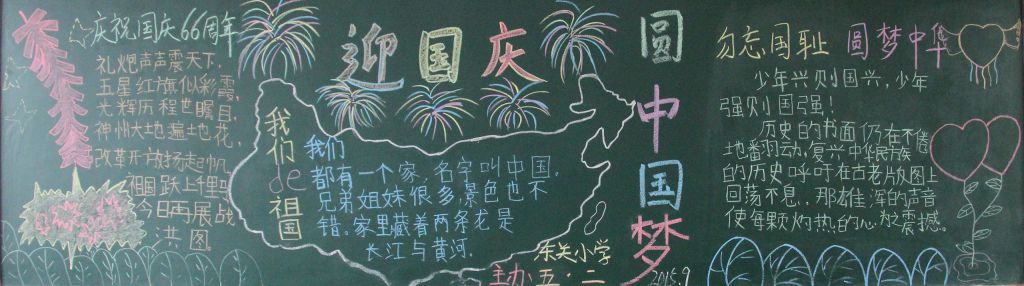 庆祝国庆66周年
礼炮声声震天下,
五星红旗似彩霞,
光辉历程世瞩目,
神州大地遍地花,
改革开放扬起帆,
祖国跃上
今日再展战
洪图
迎国庆
我们de祖国
我们
都有一个家,名字叫中国,
兄弟姐妹很多,景色也不
错。家里藏着两条龙是
长江与黄河.
东关小学
主办五·二
圆中国梦
2015.9
勿忘国耻 圆梦中华
少年兴则国兴,少年
强则国强!
历史的书面仍在不倦
地翻动,复兴中华民族
的历史呼吁在古老版图上
回荡不息.那雄浑的声音
使每颗灼热的心为之震撼。